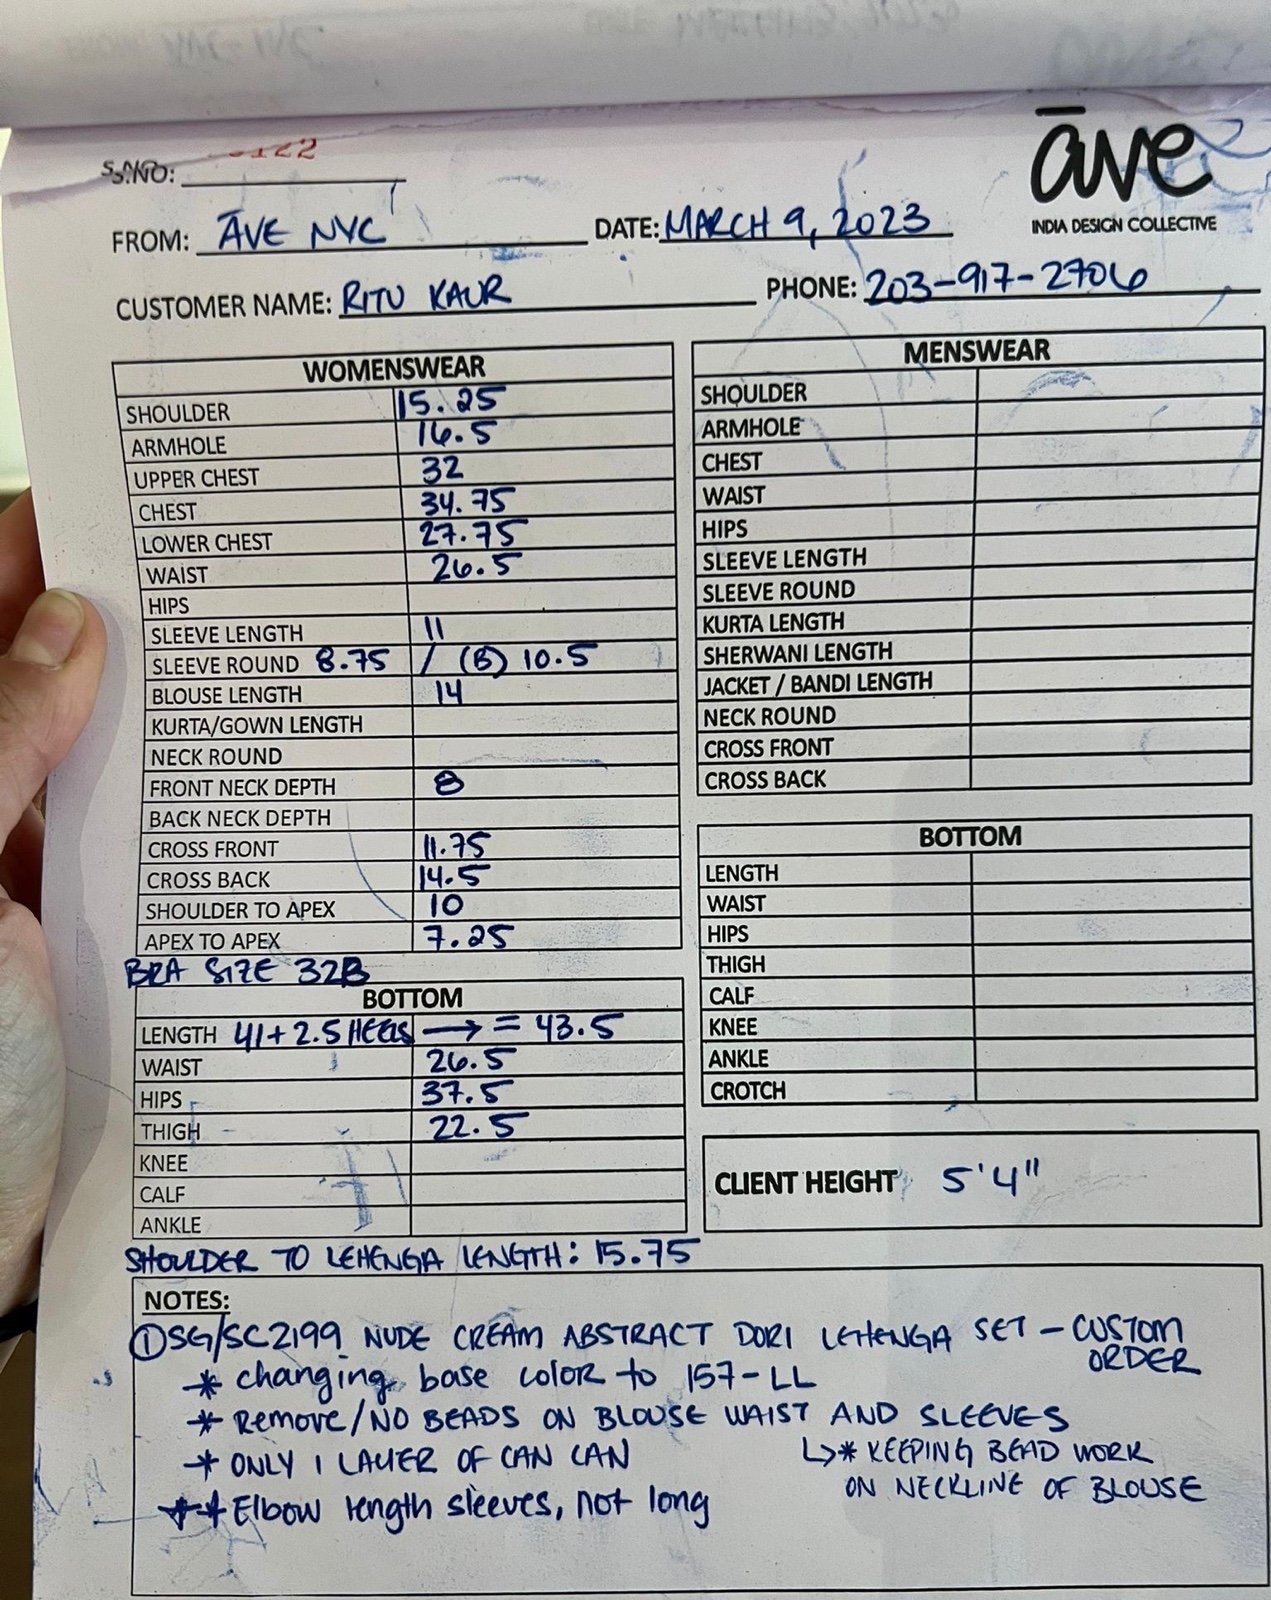 S.NO:
āve
INDIA DESIGN COLLECTIVE
FROM: ĀVE NYC DATE: MARCH 9, 2023
CUSTOMER NAME: RITU KAUR PHONE: 203-917-2706
WOMENSWEAR
SHOULDER 15.25
ARMHOLE 16.5
UPPER CHEST 32
CHEST 34.75
LOWER CHEST 27.75
WAIST 26.5
HIPS
SLEEVE LENGTH 11
SLEEVE ROUND 8.75 / (B) 10.5
BLOUSE LENGTH 14
KURTA/GOWN LENGTH
NECK ROUND
FRONT NECK DEPTH 8
BACK NECK DEPTH
CROSS FRONT 11.75
CROSS BACK 14.5
SHOULDER TO APEX 10
APEX TO APEX 7.25
BRA SIZE 32B
BOTTOM
LENGTH 41 + 2.5 HEELS → = 43.5
WAIST 26.5
HIPS 37.5
THIGH 22.5
KNEE
CALF
ANKLE
SHOULDER TO LEHENGA LENGTH: 15.75
MENSWEAR
SHOULDER
ARMHOLE
CHEST
WAIST
HIPS
SLEEVE LENGTH
SLEEVE ROUND
KURTA LENGTH
SHERWANI LENGTH
JACKET / BANDI LENGTH
NECK ROUND
CROSS FRONT
CROSS BACK
BOTTOM
LENGTH
WAIST
HIPS
THIGH
CALF
KNEE
ANKLE
CROTCH
CLIENT HEIGHT 5'4"
NOTES:
① SG/SC2199 NUDE CREAM ABSTRACT DORI LEHENGA SET - CUSTOM
ORDER
* changing base color to 157-LL
* REMOVE/NO BEADS ON BLOUSE WAIST AND SLEEVES
↳* KEEPING BEAD WORK
ON NECKLINE OF BLOUSE
* ONLY 1 LAYER OF CAN CAN
* * Elbow length sleeves, not long